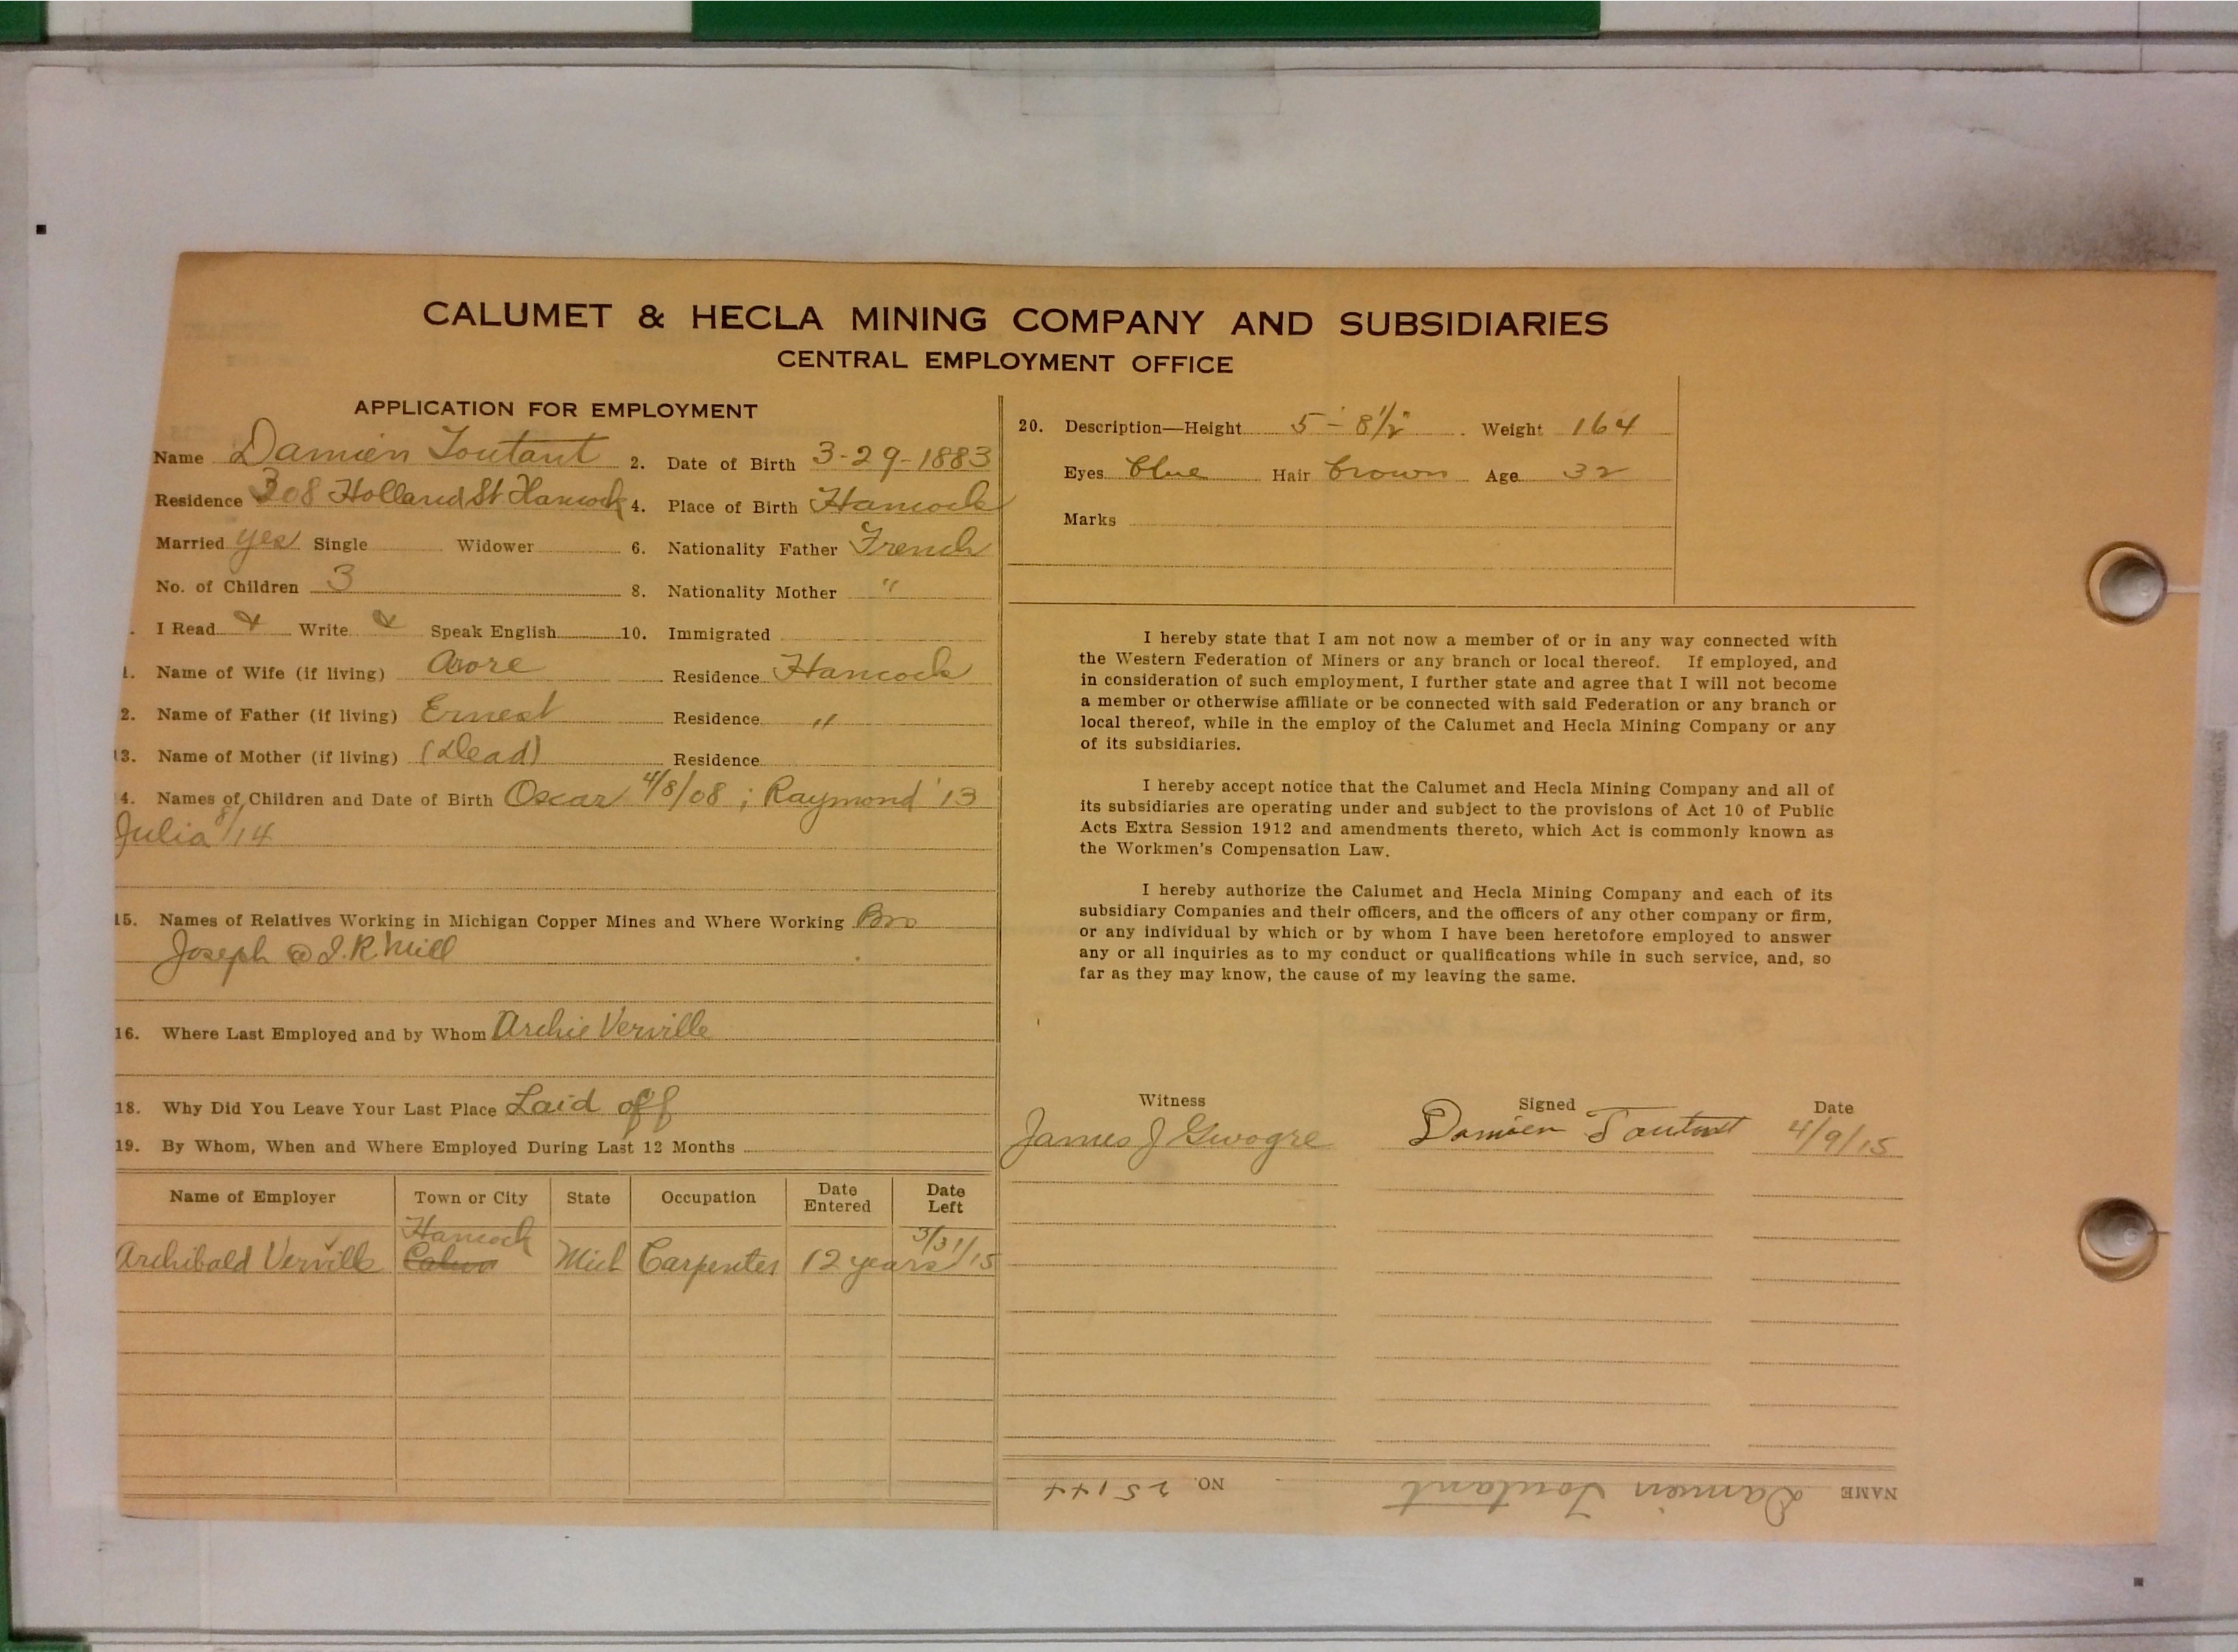 CALUMET & HECLA MINING COMPANY AND SUBSIDIARIES
CENTRAL EMPLOYMENT OFFICE
APPLICATION FOR EMPLOYMENT
Name Damien Toutant 2. Date of Birth 3-29-1883
Residence 308 Holland St Hancock 4. Place of Birth Hancock
Married yes Single Widower 6. Nationality Father French
No. of Children 3 8. Nationality Mother "
. I Read & Write & Speak English 10. Immigrated
1. Name of Wife (if living) Residence Hancock
2. Name of Father (if living) Ernest Residence "
13. Name of Mother (if living) (Dead) Residence
4. Names of Children and Date of Birth Oscar 4/8/08 ; Raymond '13
Julia 8/14
15. Names of Relatives Working in Michigan Copper Mines and Where Working Bro
Joseph @ I.R. Mill
16. Where Last Employed and by Whom Archie Verville
18. Why Did You Leave Your Last Place Laid off
19. By Whom, When and Where Employed During Last 12 Months
Name of Employer Town or City State Occupation Date Entered Date Left
Hancock 3/31/15
Archibald Verville Mich Carpenter 12 years
20. Description—Height 5' - 8 1/2" Weight 164
Eyes blue Hair brown Age 32
Marks
I hereby state that I am not now a member of or in any way connected with
the Western Federation of Miners or any branch or local thereof. If employed, and
in consideration of such employment, I further state and agree that I will not become
a member or otherwise affiliate or be connected with said Federation or any branch or
local thereof, while in the employ of the Calumet and Hecla Mining Company or any
of its subsidiaries.
I hereby accept notice that the Calumet and Hecla Mining Company and all of
its subsidiaries are operating under and subject to the provisions of Act 10 of Public
Acts Extra Session 1912 and amendments thereto, which Act is commonly known as
the Workmen's Compensation Law.
I hereby authorize the Calumet and Hecla Mining Company and each of its
subsidiary Companies and their officers, and the officers of any other company or firm,
or any individual by which or by whom I have been heretofore employed to answer
any or all inquiries as to my conduct or qualifications while in such service, and, so
far as they may know, the cause of my leaving the same.
Witness Signed Date
James J Damien Toutant 4/9/15
NAME Damien Toutant NO. 25144